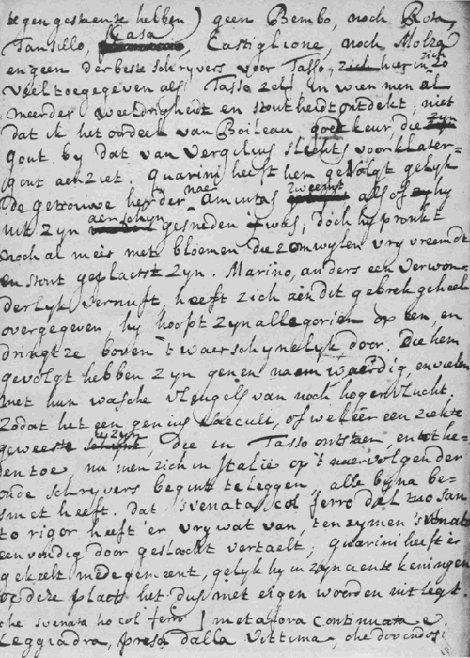 tegengestaen ze hebben) geen Bembo, noch Rota,
Tansillo, Casa, Castiglione, noch Molza
en geen der beste schryvers voor Tasso, zich hier in zo
veel toegegeven als Tasso zelf in wien men al
meerder weeldrigheidt en stoutheidt ontdekt, niet
dat ik het oordeel van Boileau goet keur, die zyn
gout by dat van Vergilius slechts voor klater-
gout aenziet. Quarini heeft hem gevolgt gelyk
de getrouwe herder naer Amintas zweemt als of hy
uit zyn aenschyn gesneden was, doch hy pronkt
noch al meer met bloemen die zomwylen vry vreemdt
en stout geplaetst zyn. Marino, anders een verwon-
derlyk vernuft, heeft zich aen dit gebrek geheel
overgegeven, hy hoopt zyn allegorien op een, en
dringt ze boven 't waerschynelyk door. Die hem
gevolgt hebben zyn genen naem waerdig, en vielen
met hun wasche vleugels van noch hoger vlucht.
Zodat het een genius saeculi, of wel eer een ziekte
geweest zy, die in Tasso ontstaen, en tot he-
den toe nu men zich in Italie op 't naervolgen der
oude schryvers begint te leggen, alle byna be-
smet heeft. dat svenata col ferro del tuo san-
to rigor heeft 'er vry wat van, ten zy men svenata
eenvoudig door geslacht vertaelt; Quarini heeft 'er
gekeelt mede gemeent, gelyk hy in zyn aentekeningen
op deze plaets het dus met eigen woorden uitlegt.
che svenata ho col ferro) metafora continuata e
leggiadra, presa dalla vittima, che dovendosi